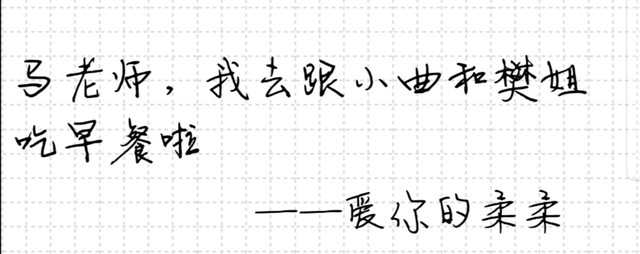 马老师，我去跟小曲和樊姐
吃早餐啦
——爱你的柔柔